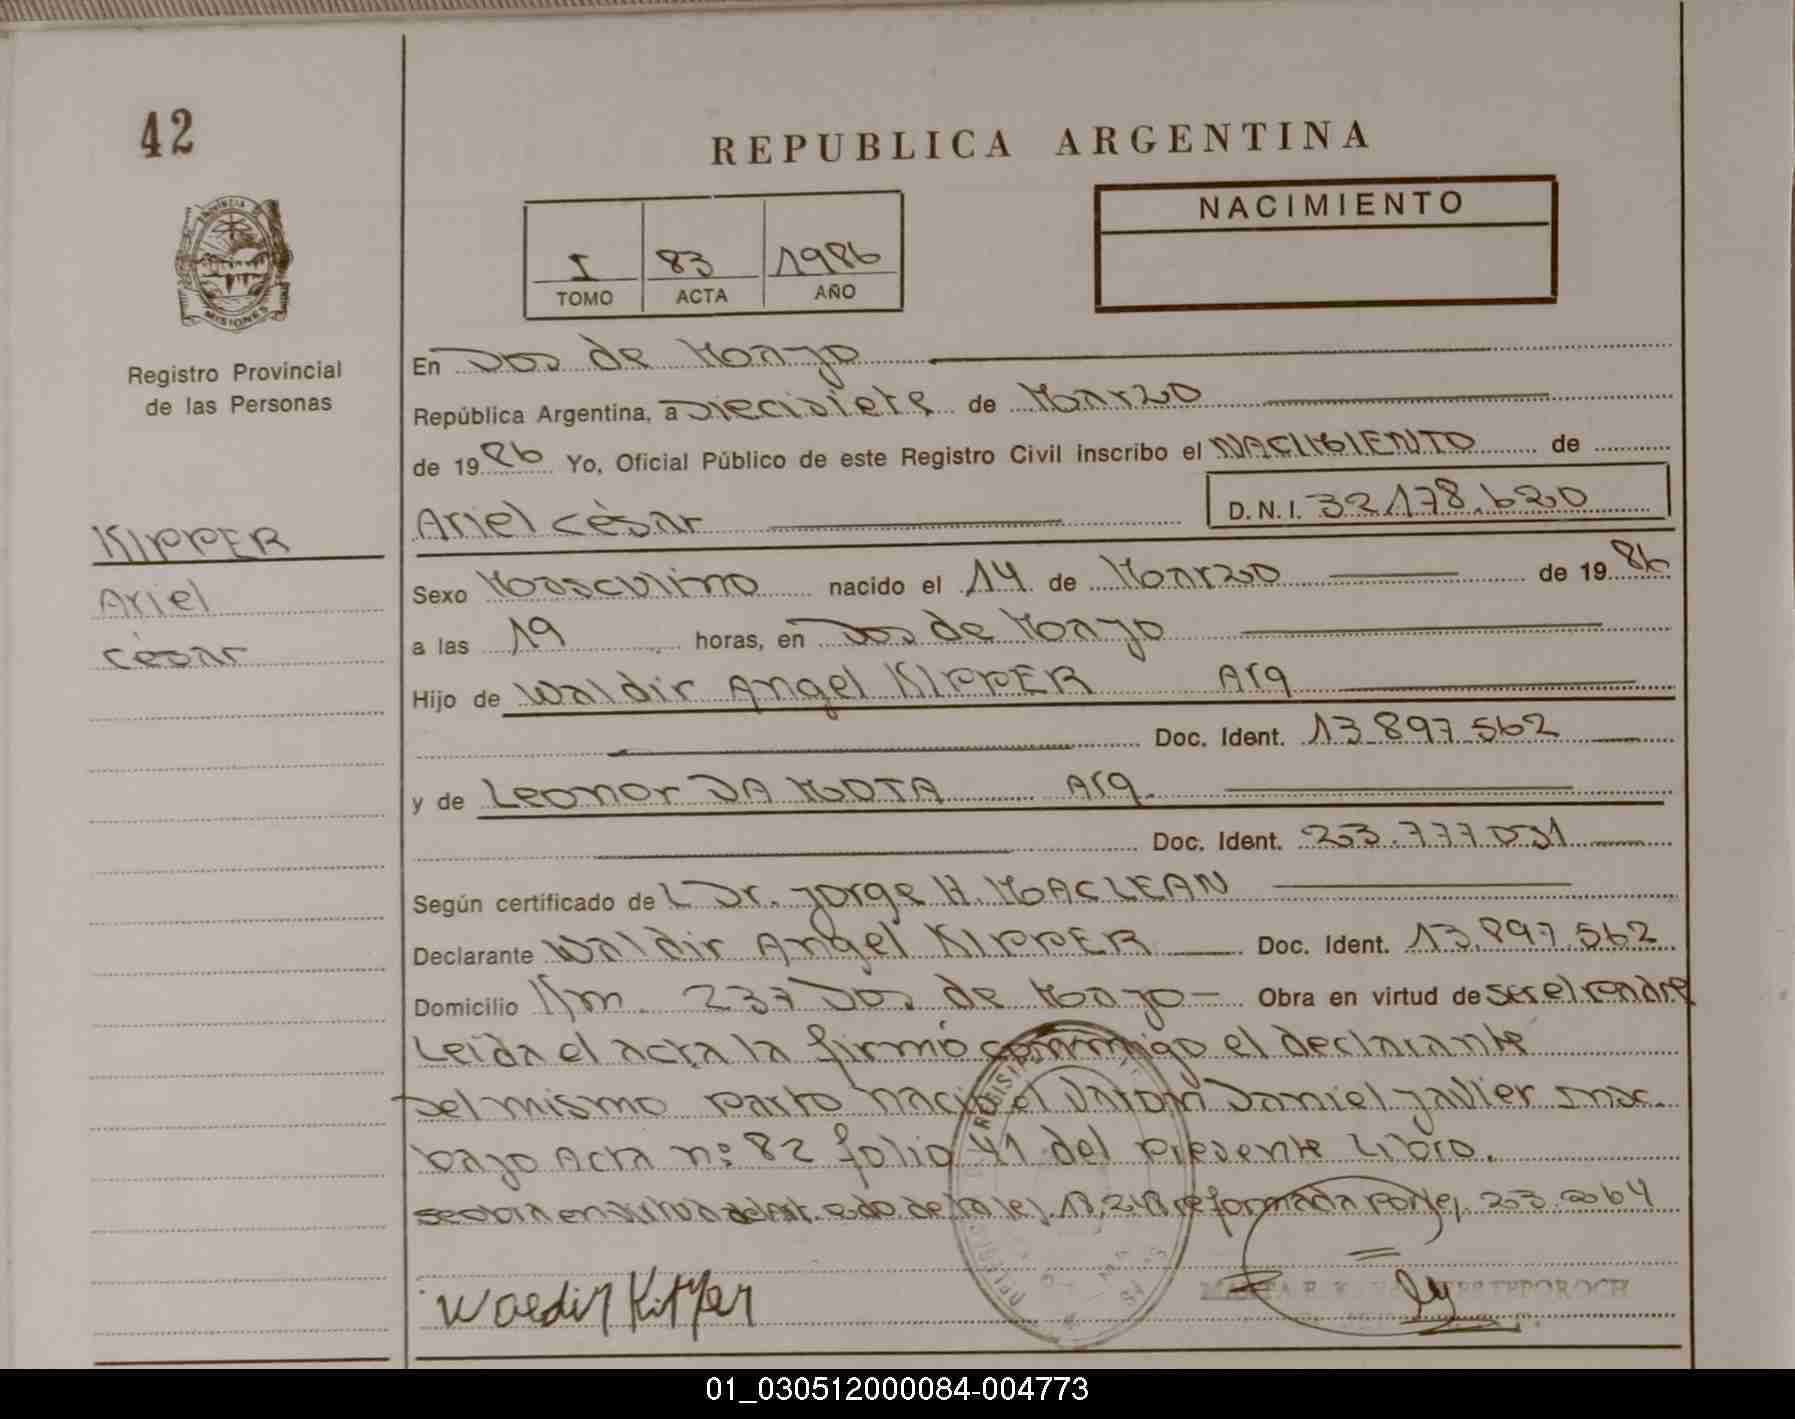 42
REPUBLICA ARGENTINA
PROVINCIA DE
MISIONES
Registro Provincial
de las Personas
I 83 1986
TOMO ACTA AÑO
NACIMIENTO
En Dos de Mayo
República Argentina, a Diecisiete de Marzo
de 1986 Yo, Oficial Público de este Registro Civil inscribo el NACIMIENTO de
Ariel César D.N.I. 32.178.620
KIPPER
Ariel
César
Sexo Masculino nacido el 14 de Marzo de 1986
a las 19 horas, en Dos de Mayo
Hijo de Waldir Angel KIPPER Arg
Doc. Ident. 13.897.562
y de Leonor DA MOTA Arg.
Doc. Ident. 23.777.031
Según certificado de L Dr. Jorge H. MACLEAN
Declarante Waldir Angel KIPPER Doc. Ident. 13.897.562
Domicilio Km. 237 Dos de Mayo Obra en virtud de ser el
Leida el acta la firmó conmigo el declarante
Del mismo parto nació el varón Daniel Javier insc.
bajo Acta nº 82 folio 41 del presente Libro.
de la ley 18.248 reformada por ley 23.
Waldir Kipper
01_030512000084-004773